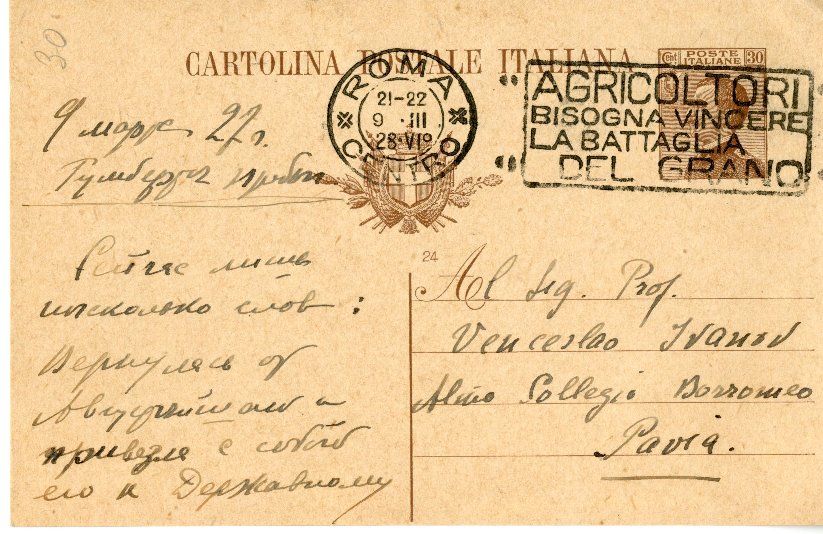 30
CARTOLINA POSTALE ITALIANA
Cent POSTE ITALIANE 30
ROMA
21-22
9 · III
28·VI°
CENTRO
"AGRICOLTORI
BISOGNA VINCERE
LA BATTAGLIA
"DEL GRANO
9 марта
лишь
несколько слов:
Вернулась от
и
привезла с собой
его к Державному
24
Al Sig. Prof.
Venceslao Ivanov
Almo Collegio Borromeo
Pavia.